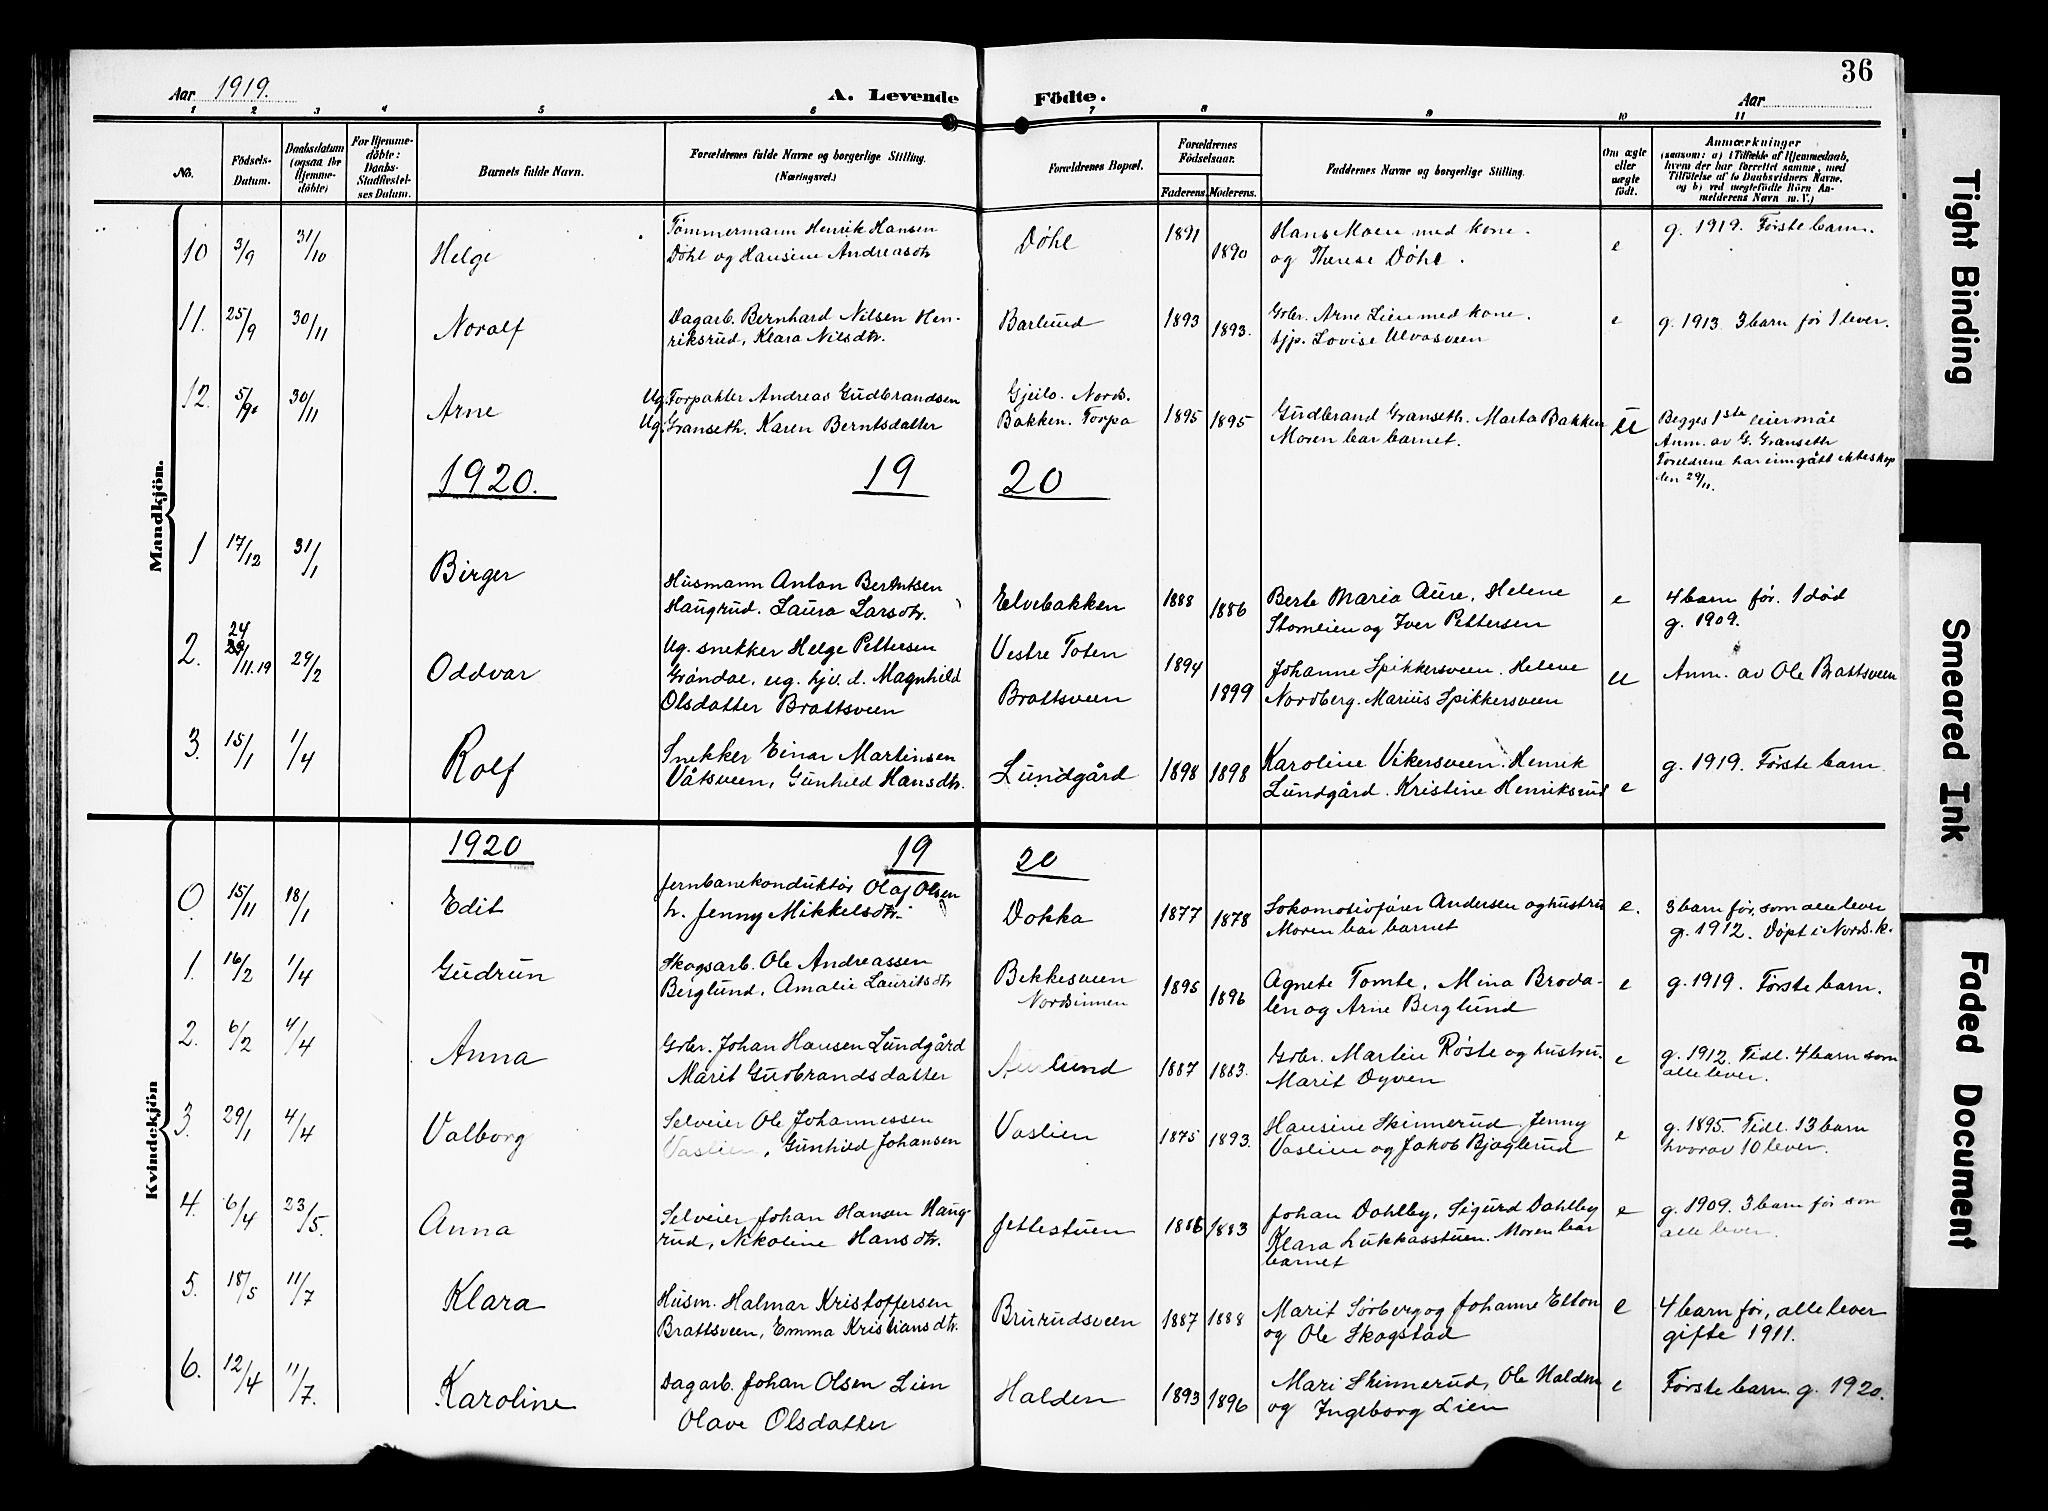 36
Aar 1919.
A. Levende Födte.
Aar
1 2 3 4 5 6 7 8 9 10 11
No.
Födsels-Datum.
Daabsdatum (ogsaa for Hjemmedöbte)
For Hjemmedöbte: Daabs-Stadfæstelses Datum.
Barnets fulde Navn.
Forældrenes fulde Navne og borgerlige Stilling. (Næringsvei.)
Forældrenes Bopæl.
Forældrenes Födselsaar.
Faderens. Moderens.
Faddernes Navne og borgerlige Stilling.
Om ægte eller uægte födt.
Anmærkninger
(saasom: a) i Tilfælde af Hjemmedaab, hvem der har forrettet samme, med Tilföielse af to Daabsvidners Navne. og b) ved uægtefödte Börn Anmelderens Navn m. V.)
Mandkjön.
10 3/9 31/10 Helge Tømmermann Henrik Hansen Døhl 1891 1890 Hans Moen med kone. e g. 1919. Første barn.
Døhl og Hansine Andreasdtr og Therese Døhl.
11. 25/9 30/11 Noralf Dagarb. Bernhard Nilsen Hen- Barlund 1893 1893. Gbr. Arne Lien med kone. e g. 1913. 3 barn før 1 lever.
riksrud, Klara Nilsdtr. hjp. Lovise Ulvosveen
12. 30/11 Arne Ug. Torpakter Andreas Gudbrandsen Gjeilo. Nords. 1895 1895 Gudbrand Granseth. Marta Bakken U Begges 1ste leiermål
Ug. Granseth. Karen Berntsdatter Bakken. Torpa Moren bar barnet. Anm. av G. Granseth
Foreldrene har inngått ekteskap
den 29/11.
1920. 19 20
1 17/12 31/1 Birger Husmann Anton Berntsen Elvebakken 1888 1886 Berte Maria Aure, Helene e 4 barn før. 1 død
Haugrud. Laura Larsdtr. Stomlien og Iver Pettersen g. 1909.
2. 24/11.19 29/2 Oddvar Ug. snekker Helge Pettersen Vestre Toten 1894 1899 Johanne Spikkersveen. Helene U Anm. av Ole Brattsveen
Grøndal, ug. hjv. d. Magnhild Brattsveen Nordberg. Marius Spikkersveen
Olsdatter Brattsveen
3. 15/1 1/4 Rolf Snekker Einar Martinsen Lundgård 1898 1898 Karoline Vikersveen. Henrik e g. 1919. Første barn.
Våtsveen, Gunhild Hansdtr. Lundgård. Kristine Henriksrud
Kvindekjön
1920 19 20
0. 15/11 18/1 Edit Jernbanekonduktør Olaf Olsen Dokka 1877 1878 Lokomotivfører Andersen og hustru e. 3 barn før, som alle lever
h. Jenny Mikkelsdtr. Moren bar barnet g. 1912. Døpt i Nords. k.
1. 16/2 1/4 Gudrun Skogsarb. Ole Andreassen Bekkesveen 1895 1896 Agnete Tomte, Mina Broda- e g. 1919. Første barn.
Berglund, Amalie Lauritsdtr Nordsinnen len og Arne Berglund
2. 6/2 4/4 Anna Gbr. Johan Hansen Lundgård 1887 1883. Gbr. Martin Røste og hustru. e g. 1912. Tidl. 4 barn som
Marit Gudbrandsdatter Marit Dyven alle lever.
3. 29/1 4/4 Valborg Selveier Ole Johannessen Vaslien 1875 1893. Hansine Skinnerud, Jenny e g. 1895. Tidl. 13 barn
Vaslien, Gunhild Johansen Vaslien og Jakob Bjøglerud hvorav 10 lever.
4. 6/4 23/5. Anna Selveier Johan Hansen Haug- Jetlestuen 1886 1883 Johan Dahlby, Sigurd Dahlby e g. 1909. 3 barn før som
rud, Nikoline Hansdtr. Klara Lukkasstuen. Moren bar alle lever.
barnet
5. 18/5 11/7 Klara Husm. Halmar Kristoffersen Brurudsveen 1887 1888 Marit Sørberg og Johanne Elton e 4 barn før, alle lever
Brattsveen, Emma Kristiansdtr. og Ole Skogstad gifte 1911.
6. 12/4 11/7. Karoline Dagarb. Johan Olsen Lien Halden 1893 1896 Mari Skinnerud, Ole Halden e Første barn. g. 1920.
Olave Olsdatter og Ingeborg Lien
Tight Binding
Smeared Ink
Faded Document